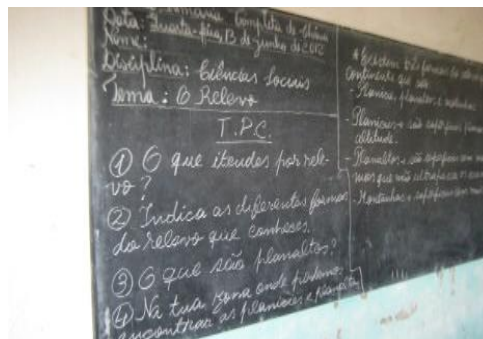 Completa de
Data: Quarta-feira, 13 de Junho de 2012
Nome:
Disciplina: Ciências Sociais
Tema: O Relevo
T.P.C.
① O que itendes por rele-
vo?
② Indica as diferentes formas
do relevo que conheces.
③ O que são planaltos?
④ Na tua zona onde podemos
encontrar as planícies e planaltos
* Existem três formas de relevo
continental que são
- Planícies, planaltos e montanhas
- Planícies - são superfícies planas
altitude.
- Planaltos - são superfícies com
mas que não ultrapassa os
- Montanhas - superfícies com